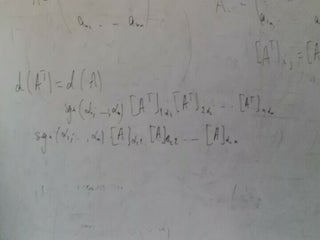 a₁ₙ . . aₙₙ
[Aᵀ]ᵢ,ⱼ = [A
d(Aᵀ) = d(A)
sgn(α₁, ..., αₙ) [Aᵀ]₁α₁ [Aᵀ]₂α₂ ... [Aᵀ]ₙαₙ
sgn(α₁, ..., αₙ) [A]α₁1 [A]α₂2 ... [A]αₙn